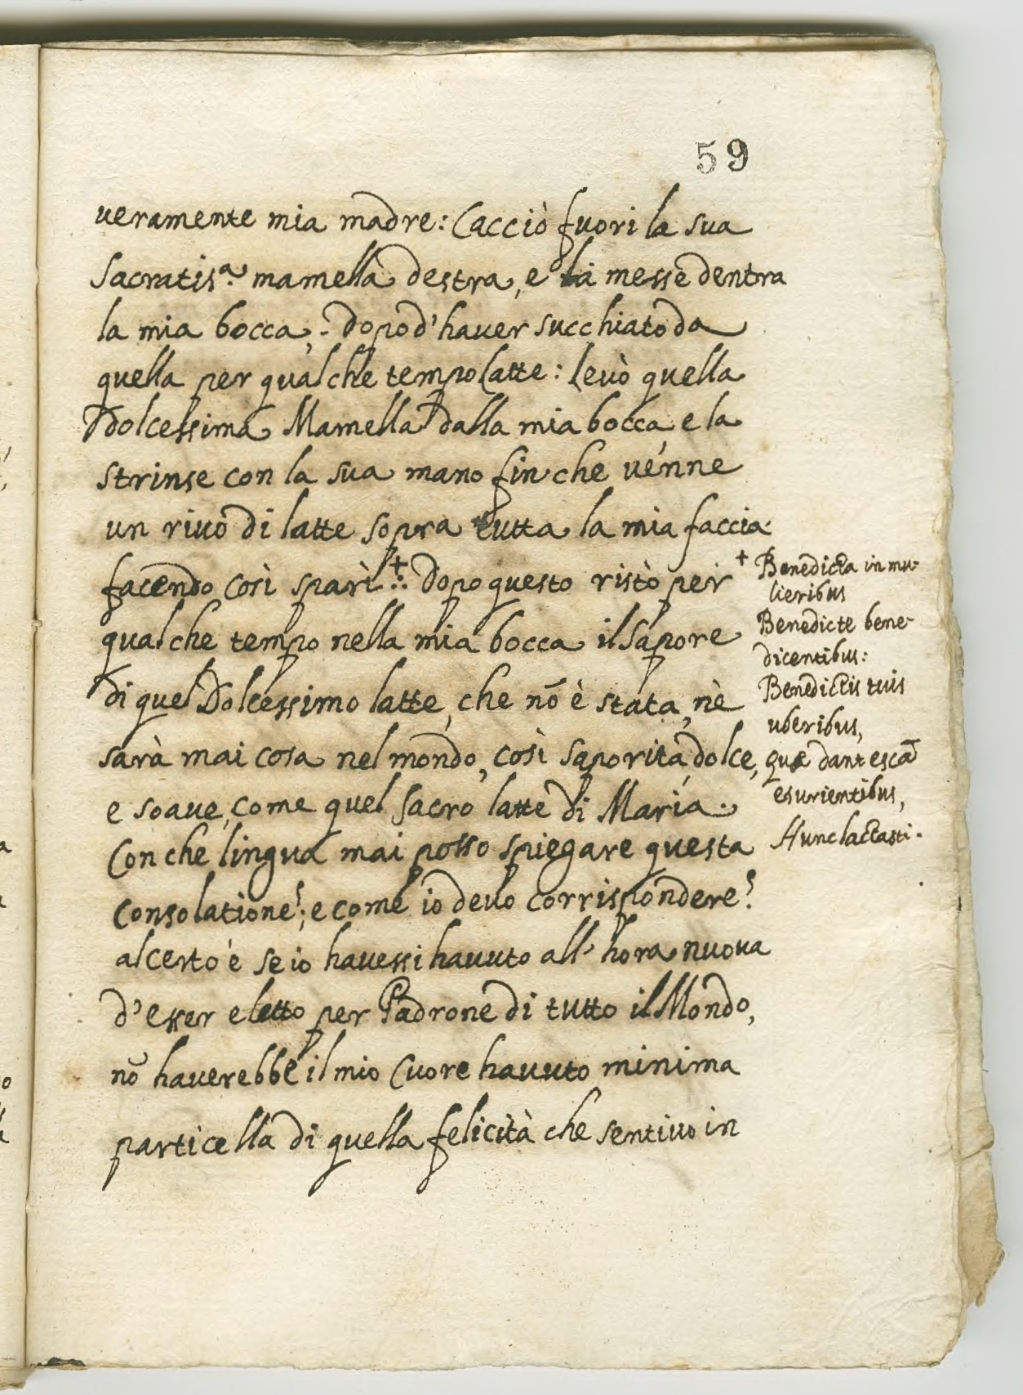 59
ueramente mia madre: Cacciò fuori la sua
Sacratis.ª mamella destra, e la messe dentra
la mia bocca, : dopo d'hauer succhiato da
quella per qualche tempo Latte: leuò quella
Dolcessima Mamella dalla mia bocca e la
strinse con la sua mano finche uénne
un riuo di latte sopra tutta la mia faccia
facendo così sparì ✝: Dopo questo ristò per
qualche tempo nella mia bocca il Sapore
di quel Dolcessimo latte, che nō è stata, nè
sarà mai cosa nel mondo, così saporita, dolce,
e soaue, come quel sacro latte di Maria.
Con che lingua mai posso spiegare questa
Consolatione?; e come io deuo corrispondere?
al certo è se io hauessi hauuto all'hora nuoua
d'esser eletto per Padrone di tutto il Mondo,
nō hauerebbe il mio Cuore hauuto minima
particella di quella felicità che sentiuo in
✝ Benedicta in mu-
lieribus
Benedicte bene-
dicentibus:
Benedictis tuis
uberibus,
quæ dant escā
esurientibus,
Hunc lactasti.